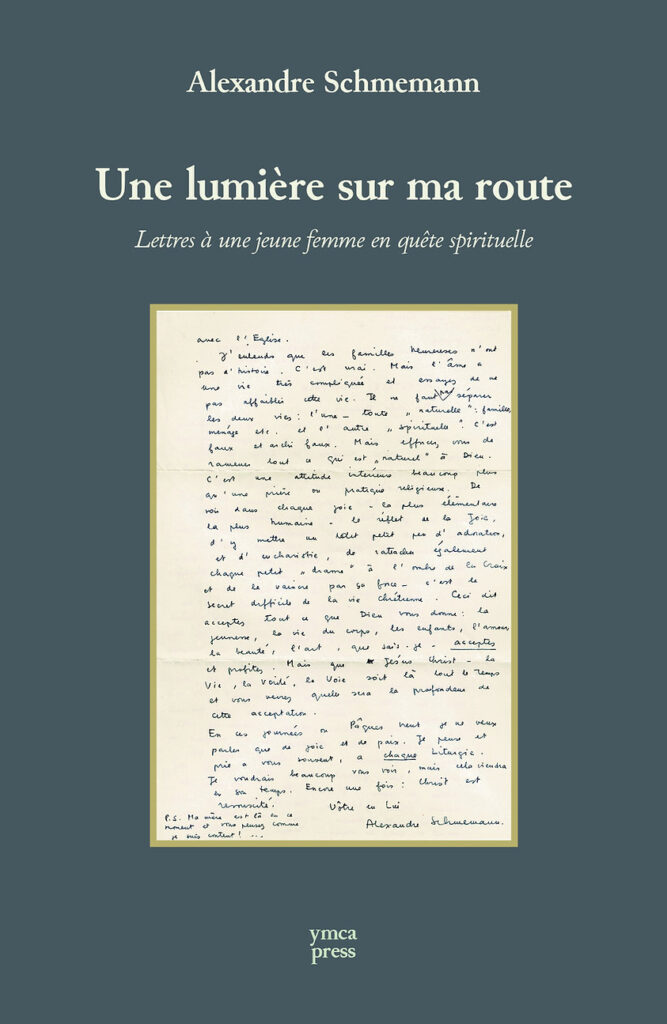 Alexandre Schmemann
Une lumière sur ma route
Lettres à une jeune femme en quête spirituelle
avec l'Eglise.
J'entends que les familles heureuses n'ont
pas d'histoire. C'est vrai. Mais l'âme a
une vie très compliquée et essayez de ne
pas affaiblir cette vie. Il ne faut pas séparer
les deux vies: l'une – toute „naturelle": famille,
ménage etc. et l'autre „spirituelle". C'est
faux et archi faux. Mais efforcez vous de
ramener tout ce qui est „naturel" à Dieu.
C'est une attitude intérieure beaucoup plus
qu'une prière ou pratique religieuse. De
voir dans chaque joie – la plus élémentaire
la plus humaine – le réflet de la Joie,
d'y mettre un petit peu d'adoration,
et d'eucharistie, de rattacher également
chaque petit „drame" à l'ombre de la Croix
et de le vaincre par sa force – c'est le
secret difficile de la vie chrétienne. Ceci dit
acceptez tout ce que Dieu vous donne: la
jeunesse, la vie du corps, les enfants, l'amour
la beauté, l'art, que sais-je – acceptez
et profitez. Mais que Jésus Christ – la
Vie, la Vérité, la Voie soit là tout le temps
et vous verrez quelle sera la profondeur de
cette acceptation.
En ces journées où Pâques vient je ne veux
parler que de joie et de paix. Je pense et
prie à vous souvent, à chaque Liturgie.
Je voudrais beaucoup vous voir, mais cela viendra
en son temps. Encore une fois: Christ est
ressuscité!
Vôtre en Lui
Alexandre Schmemann.
P.S. Ma mère est là en ce
moment et vous pensez comme
je suis content! ...
ymca
press